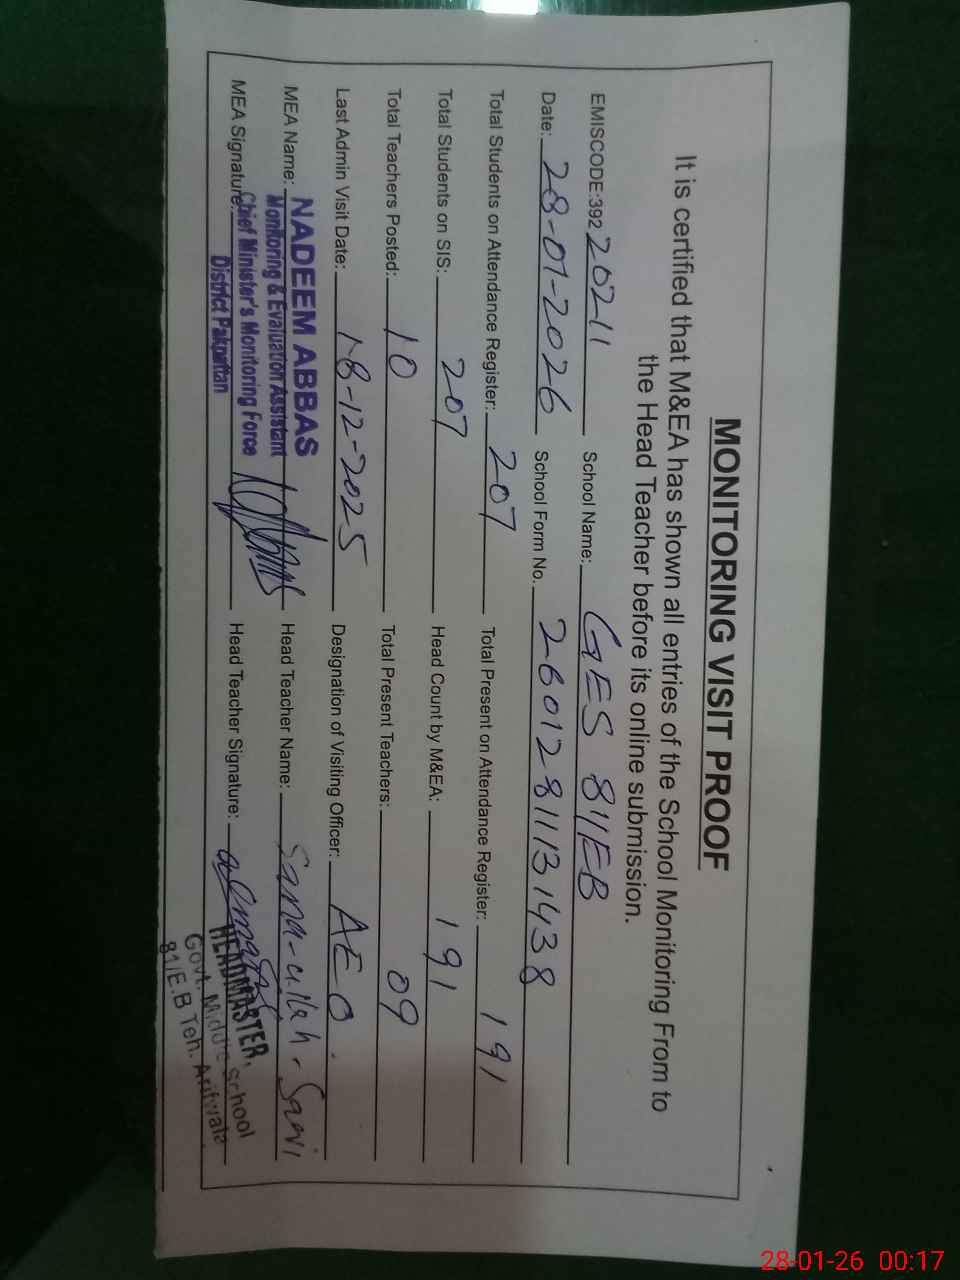 MONITORING VISIT PROOF
It is certified that M&EA has shown all entries of the School Monitoring From to
the Head Teacher before its online submission.
EMISCODE:39220211 School Name: GES 81/EB
Date: 28-01-2026 School Form No. 2601281131438
Total Students on Attendance Register: 207 Total Present on Attendance Register: 191
Total Students on SIS: 207 Head Count by M&EA: 191
Total Teachers Posted: 10 Total Present Teachers: 09
Last Admin Visit Date: 18-12-2025 Designation of Visiting Officer: AEO
MEA Name: NADEEM ABBAS Head Teacher Name: Sana-ullah
Monitoring & Evaluation Assistant
MEA Signature: Chief Minister's Monitoring Force Head Teacher Signature:
District Pakpattan
HEADMASTER,
Govt. Middle School
81/E.B Teh. Arifwala
28-01-26 00:17